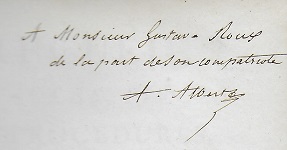 A Monsieur Gustave Roux
de la part de son compatriote
A.